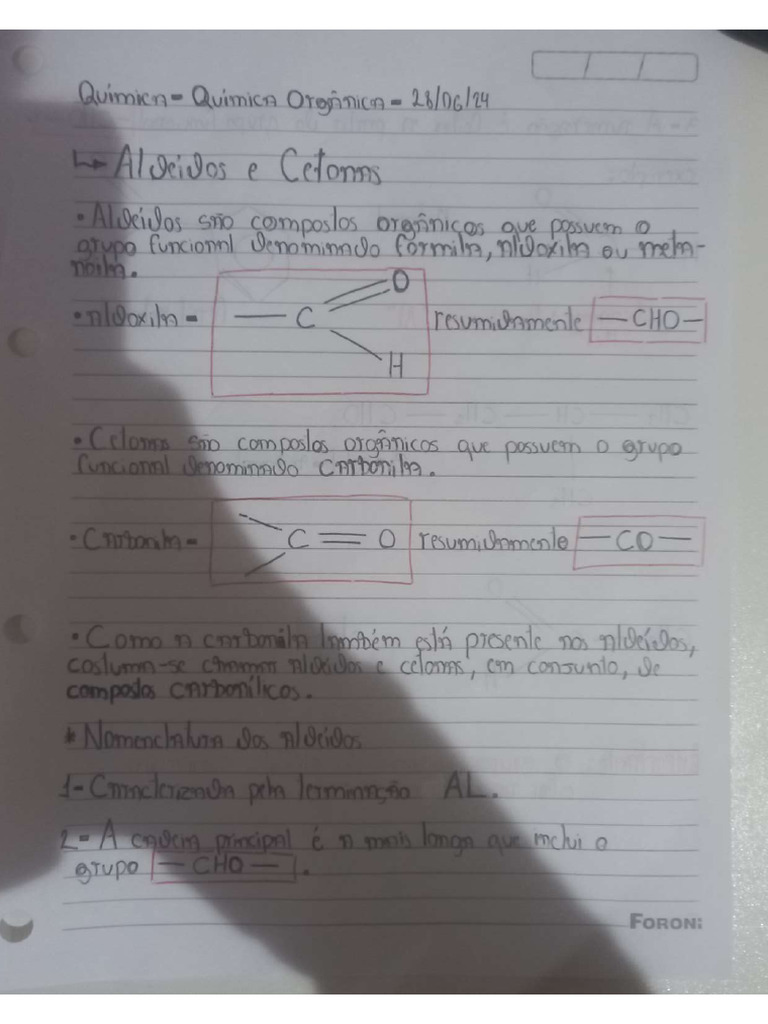 Química - Química Orgânica - 28/06/24
↳ Aldeídos e Cetonas
• Aldeídos são compostos orgânicos que possuem o
grupo funcional denominado formila, aldoxila ou meta-
noila.
• aldoxila = — C O H resumidamente — CHO —
• Cetonas são compostos orgânicos que possuem o grupo
funcional denominado carbonila.
• Carbonila = C = O resumidamente — CO —
• Como a carbonila também está presente nos aldeídos,
costuma-se chamar aldeídos e cetonas, em conjunto, de
compostos carbonílicos.
* Nomenclatura dos aldeídos
1- Caracterizada pela terminação AL.
2- A cadeia principal é a mais longa que inclui o
grupo — CHO — .
FORONI